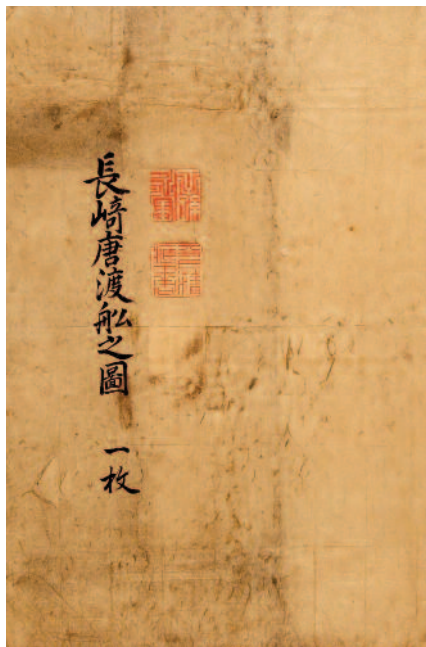 長崎唐渡舩之圖 一枚